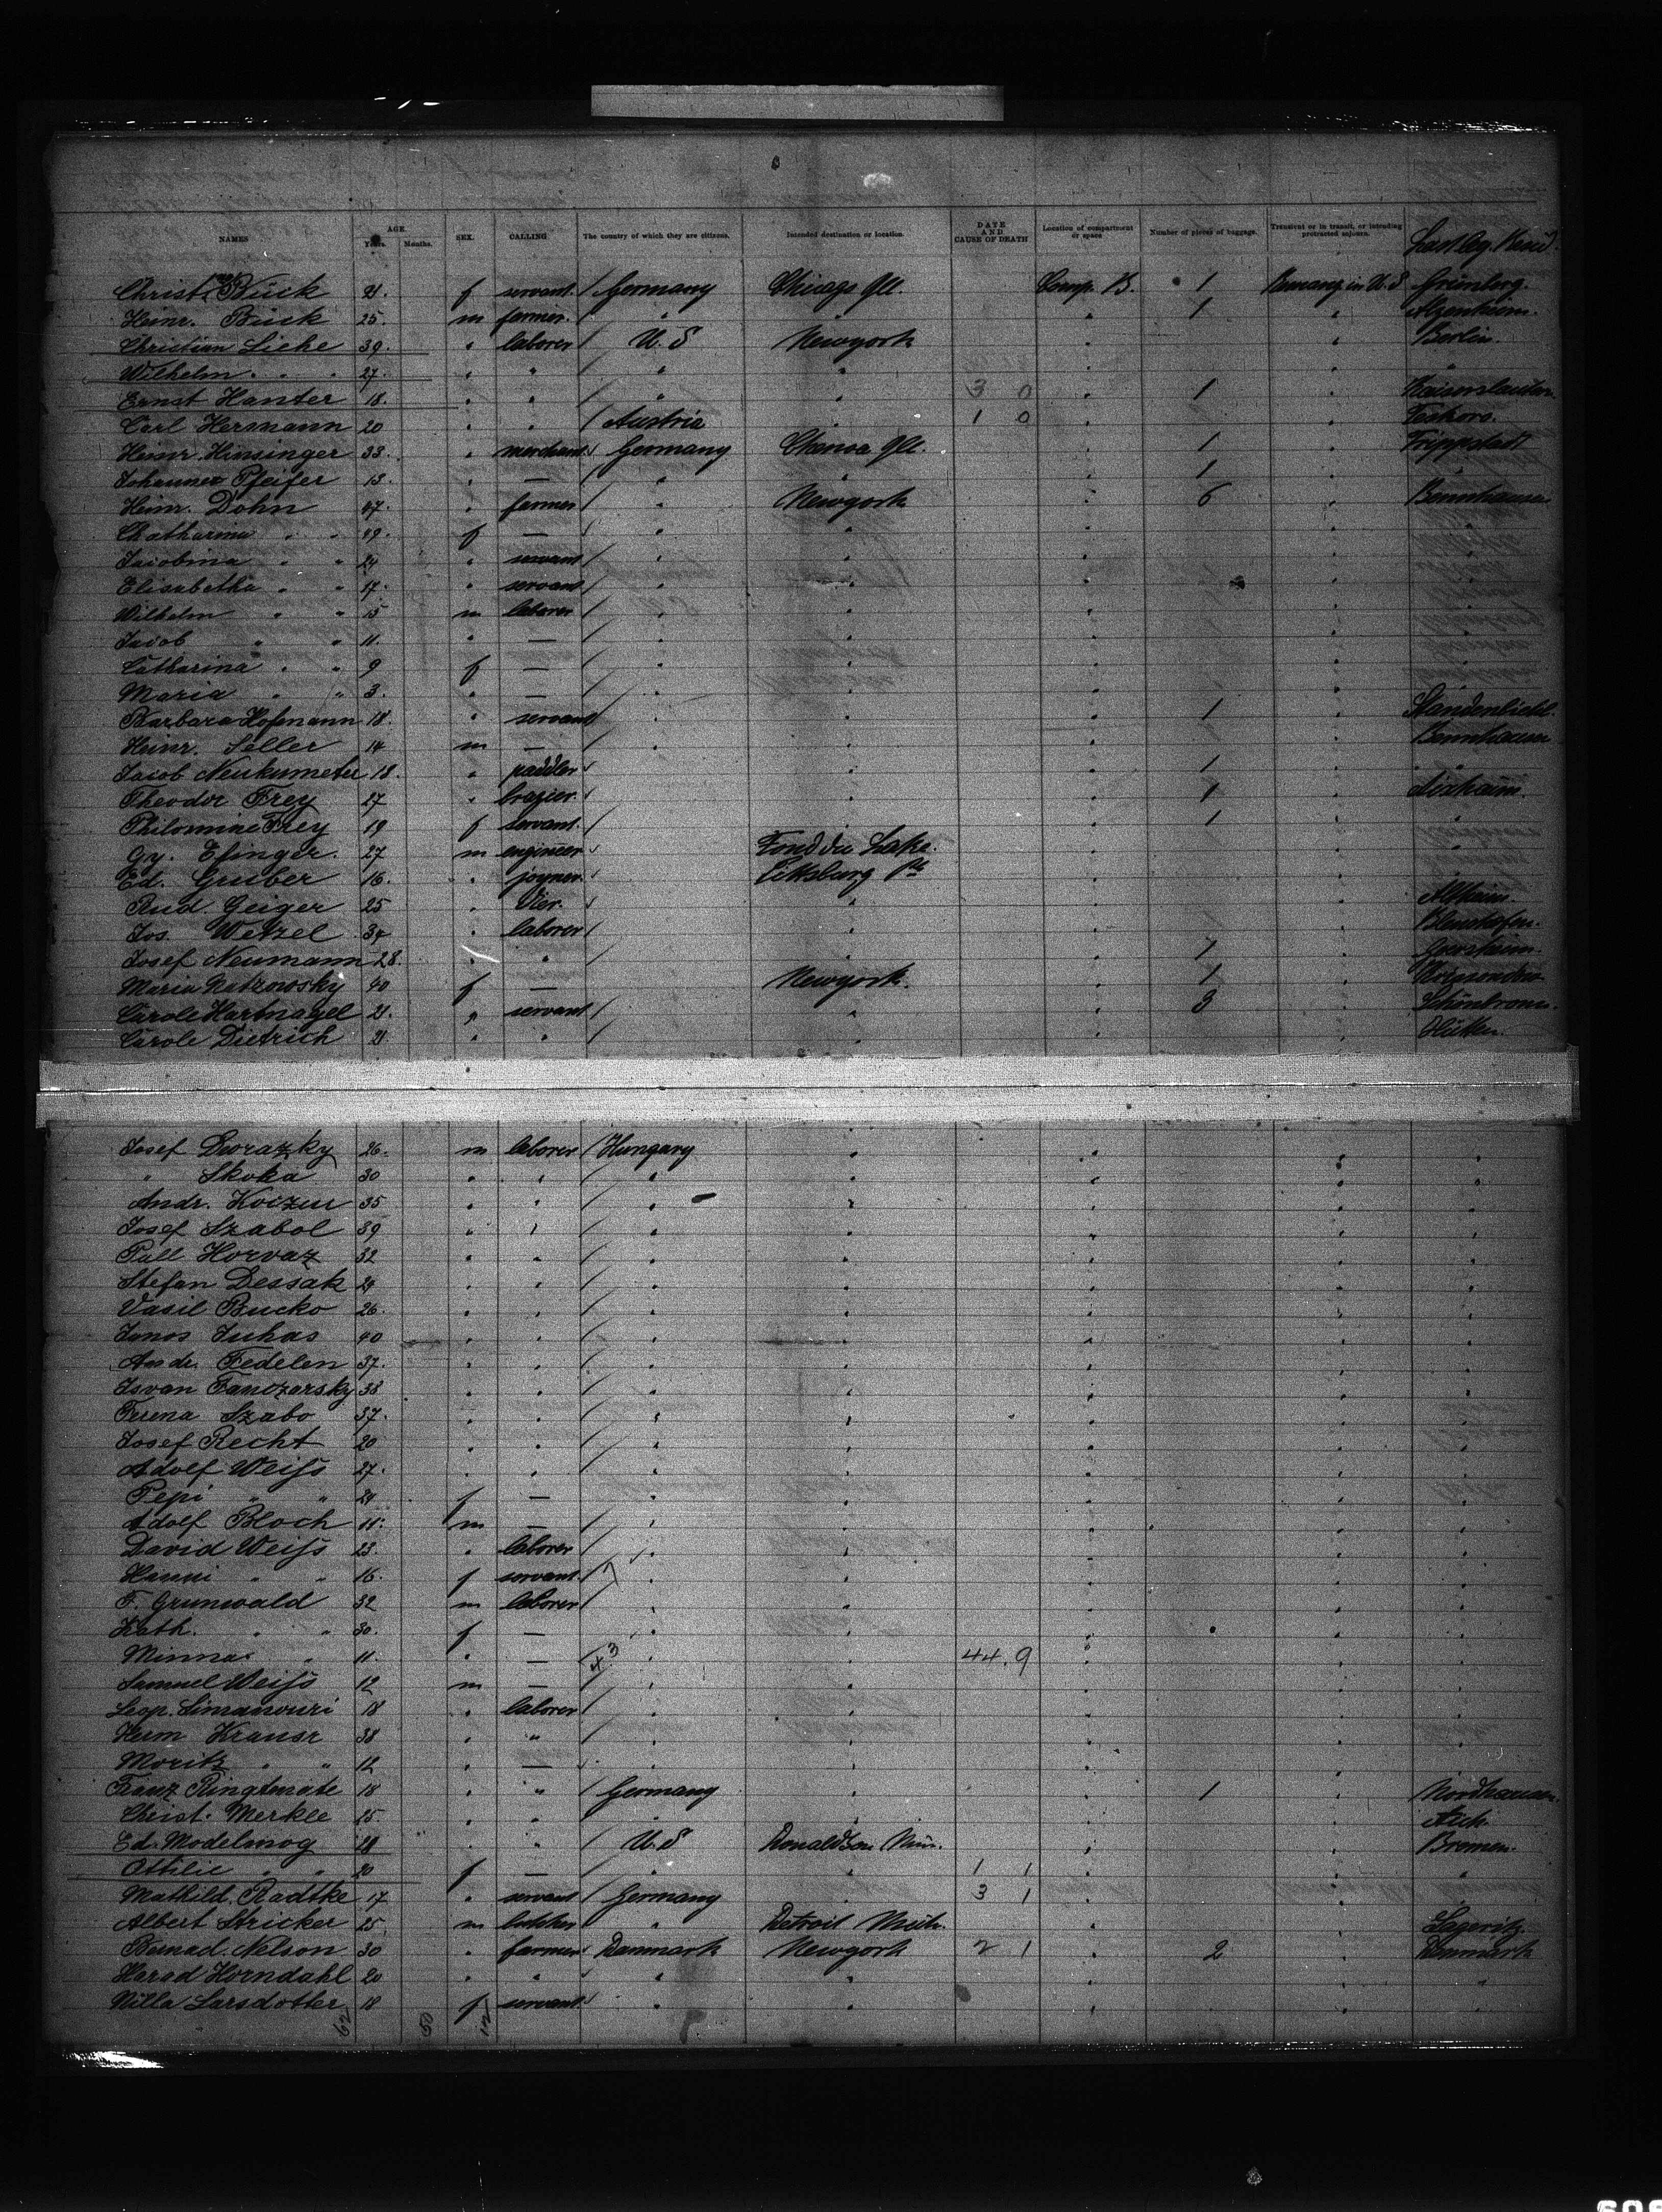 NAMES AGE. Years. Months. SEX. CALLING The country of which they are citizens. Intended destination or location. DATE AND CAUSE OF DEATH Location of compartment or space Number of pieces of baggage. Transient or in transit, or intending protracted sojourn.
Christ. Bück 21. f servant. / Germany Chicago Ill. Comp. B. 1 in U.S Grünberg.
Heinr. Bück 25. m farmer. / " " " 1 "
Christian Lieke 39. " laborer / U.S Newyork " " Berlin.
Wilhelm " " 27. " " / " " " " "
Ernst Hanter 18. " " / " " 3 0 " 1 "
Carl Hermann 20 " " / Austria " 1 0 " "
Heinr. Hinsinger 33. " merchant / Germany Chenoa Ill. " 1 " Trippstadt
Johannes Pfeifer 13. " — / " " " 1 " "
Heinr. Dohn 47. " farmer / " Newyork " 6 " Bennhausen
Chatharina " " 49. f — / " " " " "
Jacobina " " 24 " servant / " " " " "
Elisabetha " " 17. " servant / " " " " "
Wilhelm " " 15 m laborer / " " " " "
Jacob " " 11. " — / " " " " "
Catharina " " 9 f — / " " " " "
Maria " " 3. " — / " " " " "
Barbara Hofmann 18. " servant / " " " 1 "
Heinr. Seller 14 m — / " " " " Bennhausen
Jacob Neukumeter 18. " paddler / " " 1 " "
Theodor Frey 27 " brazier / " " 1 " Aixheim.
Philomine Frey 19 f servant. / " " 1 " "
Gg. Efinger. 27 m engineer / Fond du Lake. " " "
Ed. Gruber 16. " joyner. / Pittsburg Pa " " "
Rud. Geiger 25 " / " " " Altheim.
Jos. Wetzel 34 " laborer / " " "
Josef Neumann 28. " " / " " 1 "
Maria Natzowsky 40 f — Newyork. " 1 "
Carole Hartnagel 21. " servant / " " 3 " Schönbronn.
Carole Dietrich 21 " " / " " " Hütten.
Josef Dworazky 26. m laborer / Hungary " " " "
" Skoka 30 " " / " " " " "
Andr. Koczur 35 " " / " " " " "
Josef Szabol 39 " " / " " " " "
Pall Horvaz 32 " " / " " " " "
Stefan Dessak 24 " " / " " " " "
Vasil Bucko 26. " " / " " " " "
Janos Juhas 40 " " / " " " " "
Andr. Fedelen 37. " " / " " " " "
Isvan Fanczarsky 38 " " / " " " " "
Ferena Szabo 37. " " / " " " " "
Josef Recht 20 " " / " " " " "
Adolf Weiſs 27. " " / " " " " "
Pepi " " 24 f — " " " " "
Adolf Bloch 11. m — / " " " " "
David Weiſs 23. " laborer / " " " " "
Hanni " " 16. f servant. / " " " " "
F. Grunwald 32 m laborer / " " " " "
Kath. " " 30. f — " " " " "
Minna " 11. " — / " " 44.9 " " "
Samuel Weiſs 12 m — / " " " " "
Leop. Simanouri 18 " laborer / " " " " "
Herm Krausr 38 " " / " " " " "
Moritz " " 12 " — " " " " "
Franz Ringtmate 18 " " / Germany " " 1 " Nordhausen.
Christ. Merkle 25. " " / " " " " Aich.
Ed. Modelmog 28 " " / U.S Donaldson Min. " " Bremen.
Ottilie " " 20 f — / " " 1 1 " " "
Mathild. Radtke 17 " servant / Germany " 3 1 " " "
Albert Stricker 25 m butcher / " Detroit Mich. " "
Bernad. Nelson 30 " farmer / Danmark Newyork 2 1 " 2 " Denmark
Harad Horndahl 20 " " / " " " " "
Nilla Larsdotter 18 f servant. / " " " " "
62 50 12